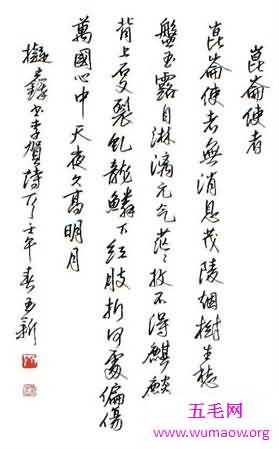 崑崙使者
崑崙使者無消息茂陵烟樹生愁
盤玉露自淋漓元气茫〻收不得麒麟
背上裂虬龍鱗下红肢折何處偏傷
萬國心中天夜久高明月
書李賀詩壬午春玉新
五毛网
www.wumaow.org